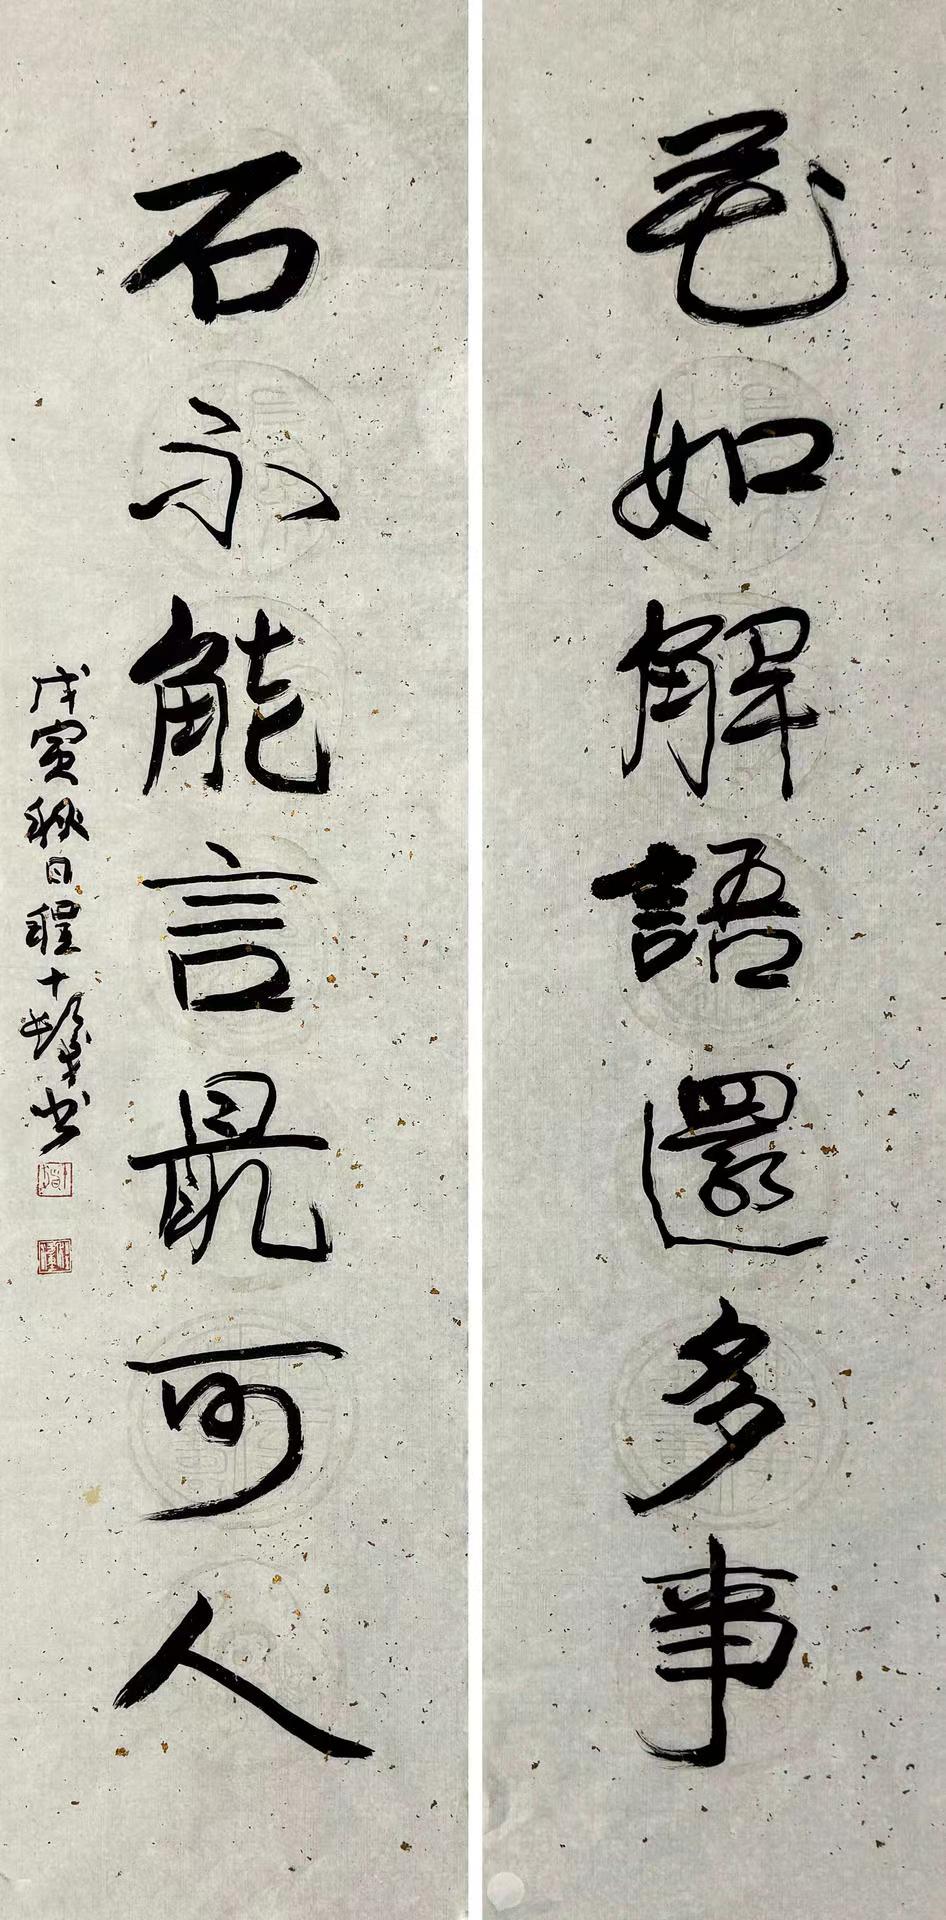 花如解語還多事
石不能言最可人
戊寅秋日程十髮书